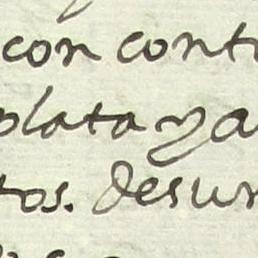 con cont
plata ya
tos. desun